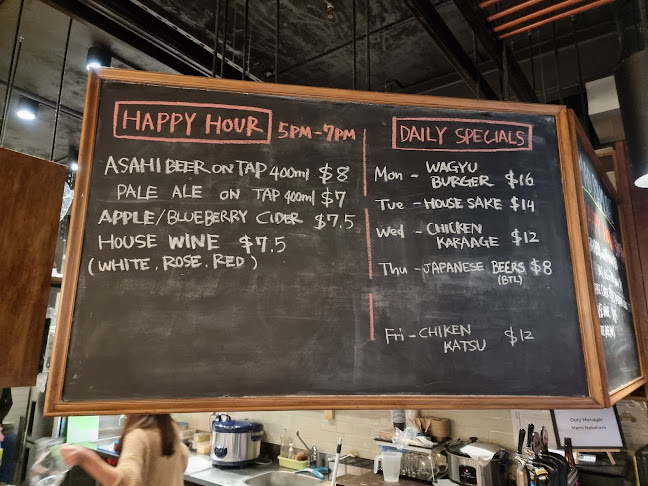 HAPPY HOUR 5PM-7PM
ASAHI BEER ON TAP 400ml $8
PALE ALE ON TAP 400ml $7
APPLE/BLUEBERRY CIDER $7.5
HOUSE WINE $7.5
(WHITE, ROSE, RED)
DAILY SPECIALS
Mon - WAGYU
BURGER $16
Tue - HOUSE SAKE $14
Wed - CHICKEN
KARAAGE $12
Thu - JAPANESE BEERS $8
(BTL)
Fri - CHIKEN
KATSU $12
Duty Manager